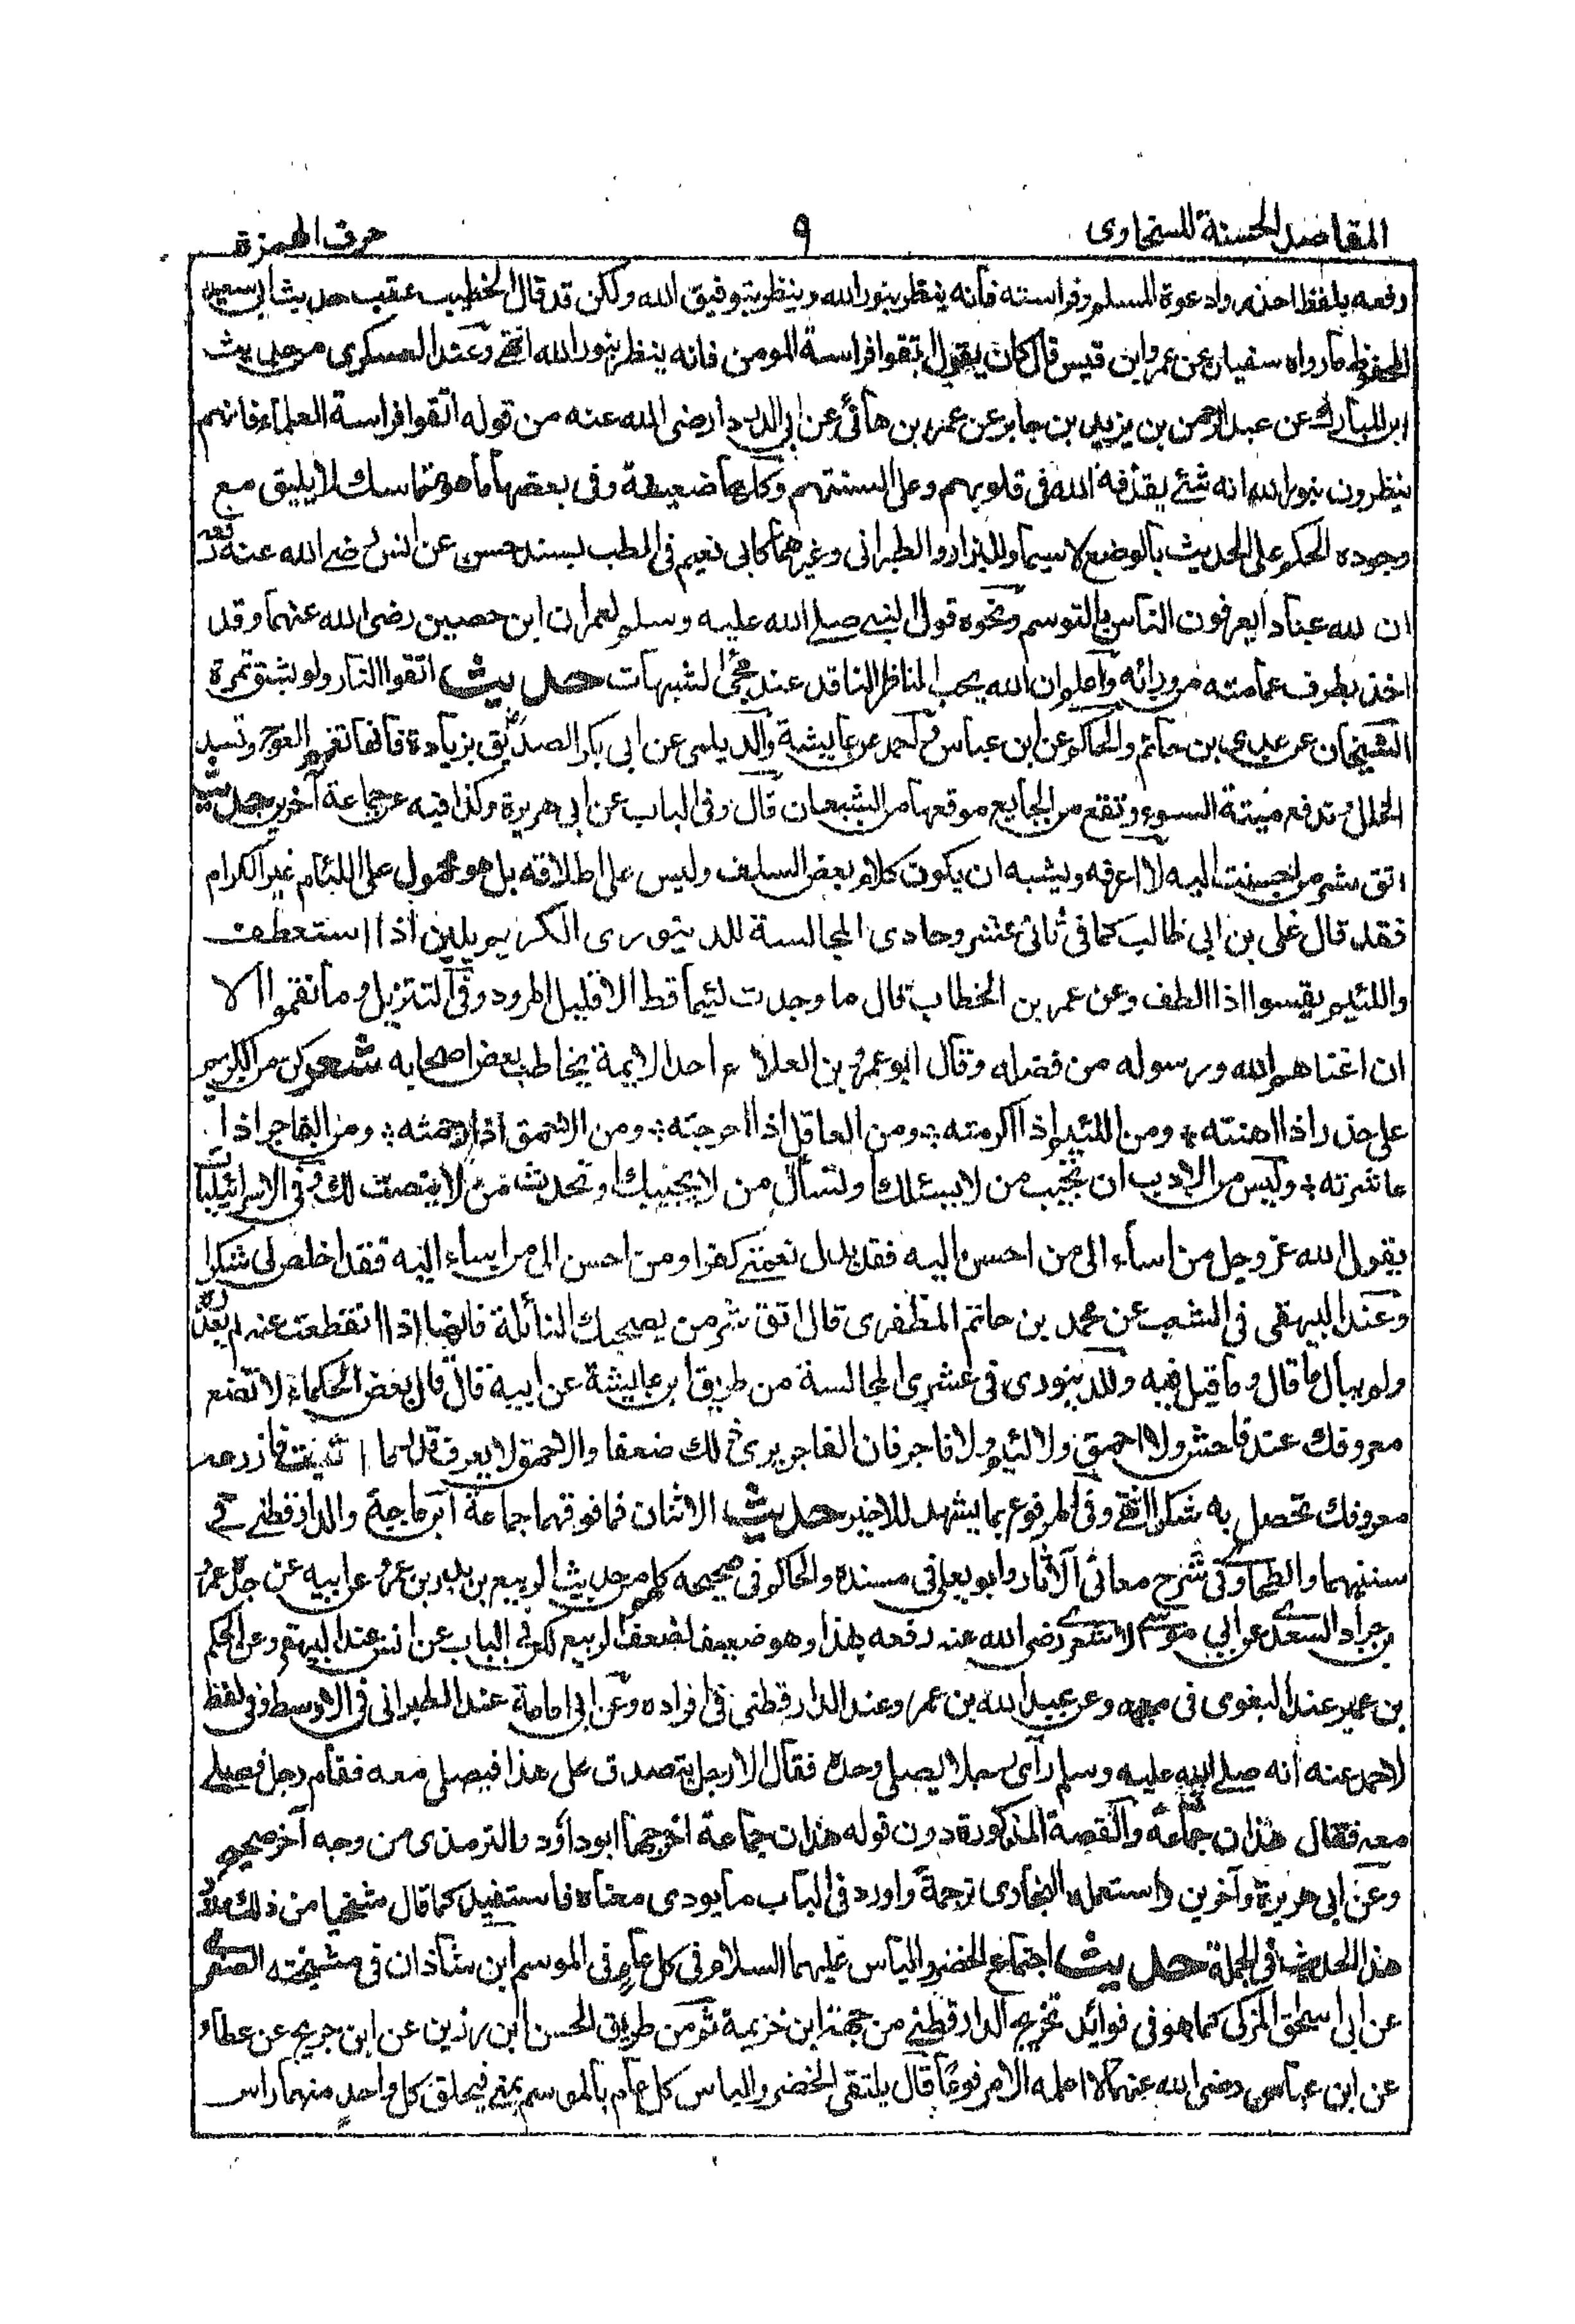 المقاصد الحسنة للسخاوى ٩ حرف الهمزة
رفعه بلفظ احذروا دعوة المسلم وفراسته فانه ينظر بنور الله وينظر بتوفيق الله ولكن قد قال الخطيب عقب حديث ابى سعيد
المحفوظ ما رواه سفيان عن عمرو ابن قيس قال كان يقال اتقوا فراسة المومن فانه ينظر بنور الله انتهى وعند العسكرى من حديث
ابن المبارك عن عبد الرحمن بن يزيد بن جابر عن عمير بن هانئ عن ابى الدرداء رضى الله عنه من قوله اتقوا فراسة العلماء فانهم
ينظرون بنور الله انه شئ يقذفه الله فى قلوبهم وعلى السنتهم وكلها ضعيفة وفى بعضها ما هو متماسك لا يليق مع
وجوده الحكم على الحديث بالوضع لاسيما وللبزار والطبرانى وغيرهما كابى نعيم فى الطب بسند حسن عن انس رضى الله عنه رفعه
ان لله عبادا يعرفون الناس بالتوسم ونحوه قول النبى صلى الله عليه وسلم لعمران ابن حصين رضى الله عنهما وقد
اخذ بطرف عمامته من ورائه واعلم ان الله يحب الناظر الناقد عند مجئ الشبهات حديث اتقوا النار ولو بشق تمرة
الشيخان عن عدى بن حاتم والحاكم عن ابن عباس واحمد عن عايشة والديلمى عن ابى بكر الصديق بزيادة فانها تقيم العوج وتسد
الخلل وتدفع ميتة السوء وتقع من الجايع موقعها من الشبعان قال وفى الباب عن ابى هريرة وكذا فيه عن جماعة آخرين حديث
اتق شر من احسنت اليه لا اعرفه ويشبه ان يكون كلام بعض السلف وليس على اطلاقه بل هو محمول على اللئام غير الكرام
فقد قال على بن ابى طالب كما فى ثانى عشر وحادى المجالسة للدينورى الكريم يلين اذا استعطف
واللئيم يقسوا اذا الطف وعن عمر بن الخطاب قال ما وجدت لئيما قط الا قليل المرودة وفى التنزيل وما نقموا الا
ان اغناهم الله ورسوله من فضله وقال ابو عمرو بن العلاء احد الايمة يخاطب بعض اصحابه شعر كن من الكريم
على حذر اذا اهنته ومن اللئيم اذا اكرمته ومن العاقل اذا احرجته ومن الاحمق اذا رحمته ومن الفاجر اذا
عاشرته وليس من الادب ان تجيب من لا يسئلك ولتسأل من لا يجيبك او تحدث من لا ينصت لك وفى الاسرائيليات
يقول الله عز وجل من اساء الى من احسن اليه فقد بدل نعمتى كفرا ومن احسن الى من اساء اليه فقد اخلص لى شكرا
وعند البيهقى فى الشعب عن محمد بن حاتم المظفرى قال اتق شر من يصحبك لنائلة فانها اذا انقطعت عنه لم يعذر
ولو يبال ما قال وما قيل فيه وللدينورى فى عشرى المجالسة من طريق ابن عايشة عن ابيه قال قال بعض الحكماء لا تضع
معروفك عند فاحش ولا احمق ولا لئيم ولا فاجر فان الفاجر يرى ذلك ضعفا والاحمق لا يعرف قدر ما اتيت فازرع
معروفك تحصل به شكرا انتهى وفى المرفوع بما يشهد للاخير حديث الاثنان فما فوقهما جماعة ابن ماجة والدارقطنى فى
سننيهما والطحاوى فى شرح معانى الآثار وابو يعلى فى مسنده والحاكم فى صحيحه كلهم من حديث الربيع بن بدر بن عمرو عن ابيه عن جده عمرو
بن جراد السعدى عن ابى موسى الاشعرى رضى الله عنه رفعه بهذا وهو ضعيف لضعف الربيع لكن فى الباب عن انس عند البيهقى وعن الحكم
بن عمير عند البغوى فى معجمه وعن عبيد الله بن عمر وعند الدارقطنى فى افراده وعن ابى امامة عند الطبرانى فى الاوسط وفى لفظ
لاحمد عنه انه صلى الله عليه وسلم رآى رجلا يصلى وحده فقال الا رجل يتصدق على هذا فيصلى معه فقام رجل فصلى
معه فقال هذان جماعة والقصة المذكورة دون قوله هذان جماعة اخرجها ابو داؤد والترمذى من وجه آخر صحيح
وعن ابى هريرة وآخرين واستعمله البخارى ترجمة واورد فى الباب ما يودى معناه فاستفيد كما قال شيخنا من ذلك ورود
هذا الحديث فى الجملة حديث اجتماع الخضر والياس عليهما السلام فى كل عام فى الموسم ابن شاذان فى مشيخته الصغرى
عن ابى اسحق المزكى كما هو فى فوائد تخريج الدارقطنى من جهة ابن خزيمة ثم من طريق الحسن ابن رزين عن ابن جريج عن عطاء
عن ابن عباس رضى الله عنهما لا اعلمه الا مرفوعا قال يلتقى الخضر والياس كل عام بالموسم بمنى فيحلق كل واحد منهما راس